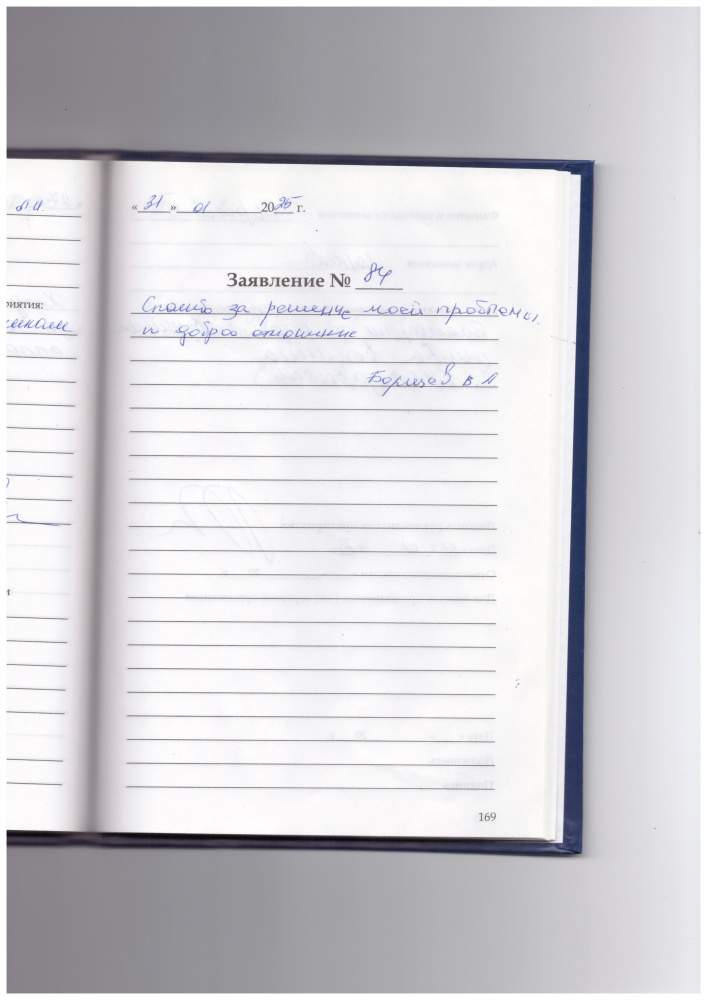 л.и.
«31» 01 2025 г.
Заявление № 84
риятия:
Спасибо за решение моей проблемы
и доброе отношение
Борщев В А
169